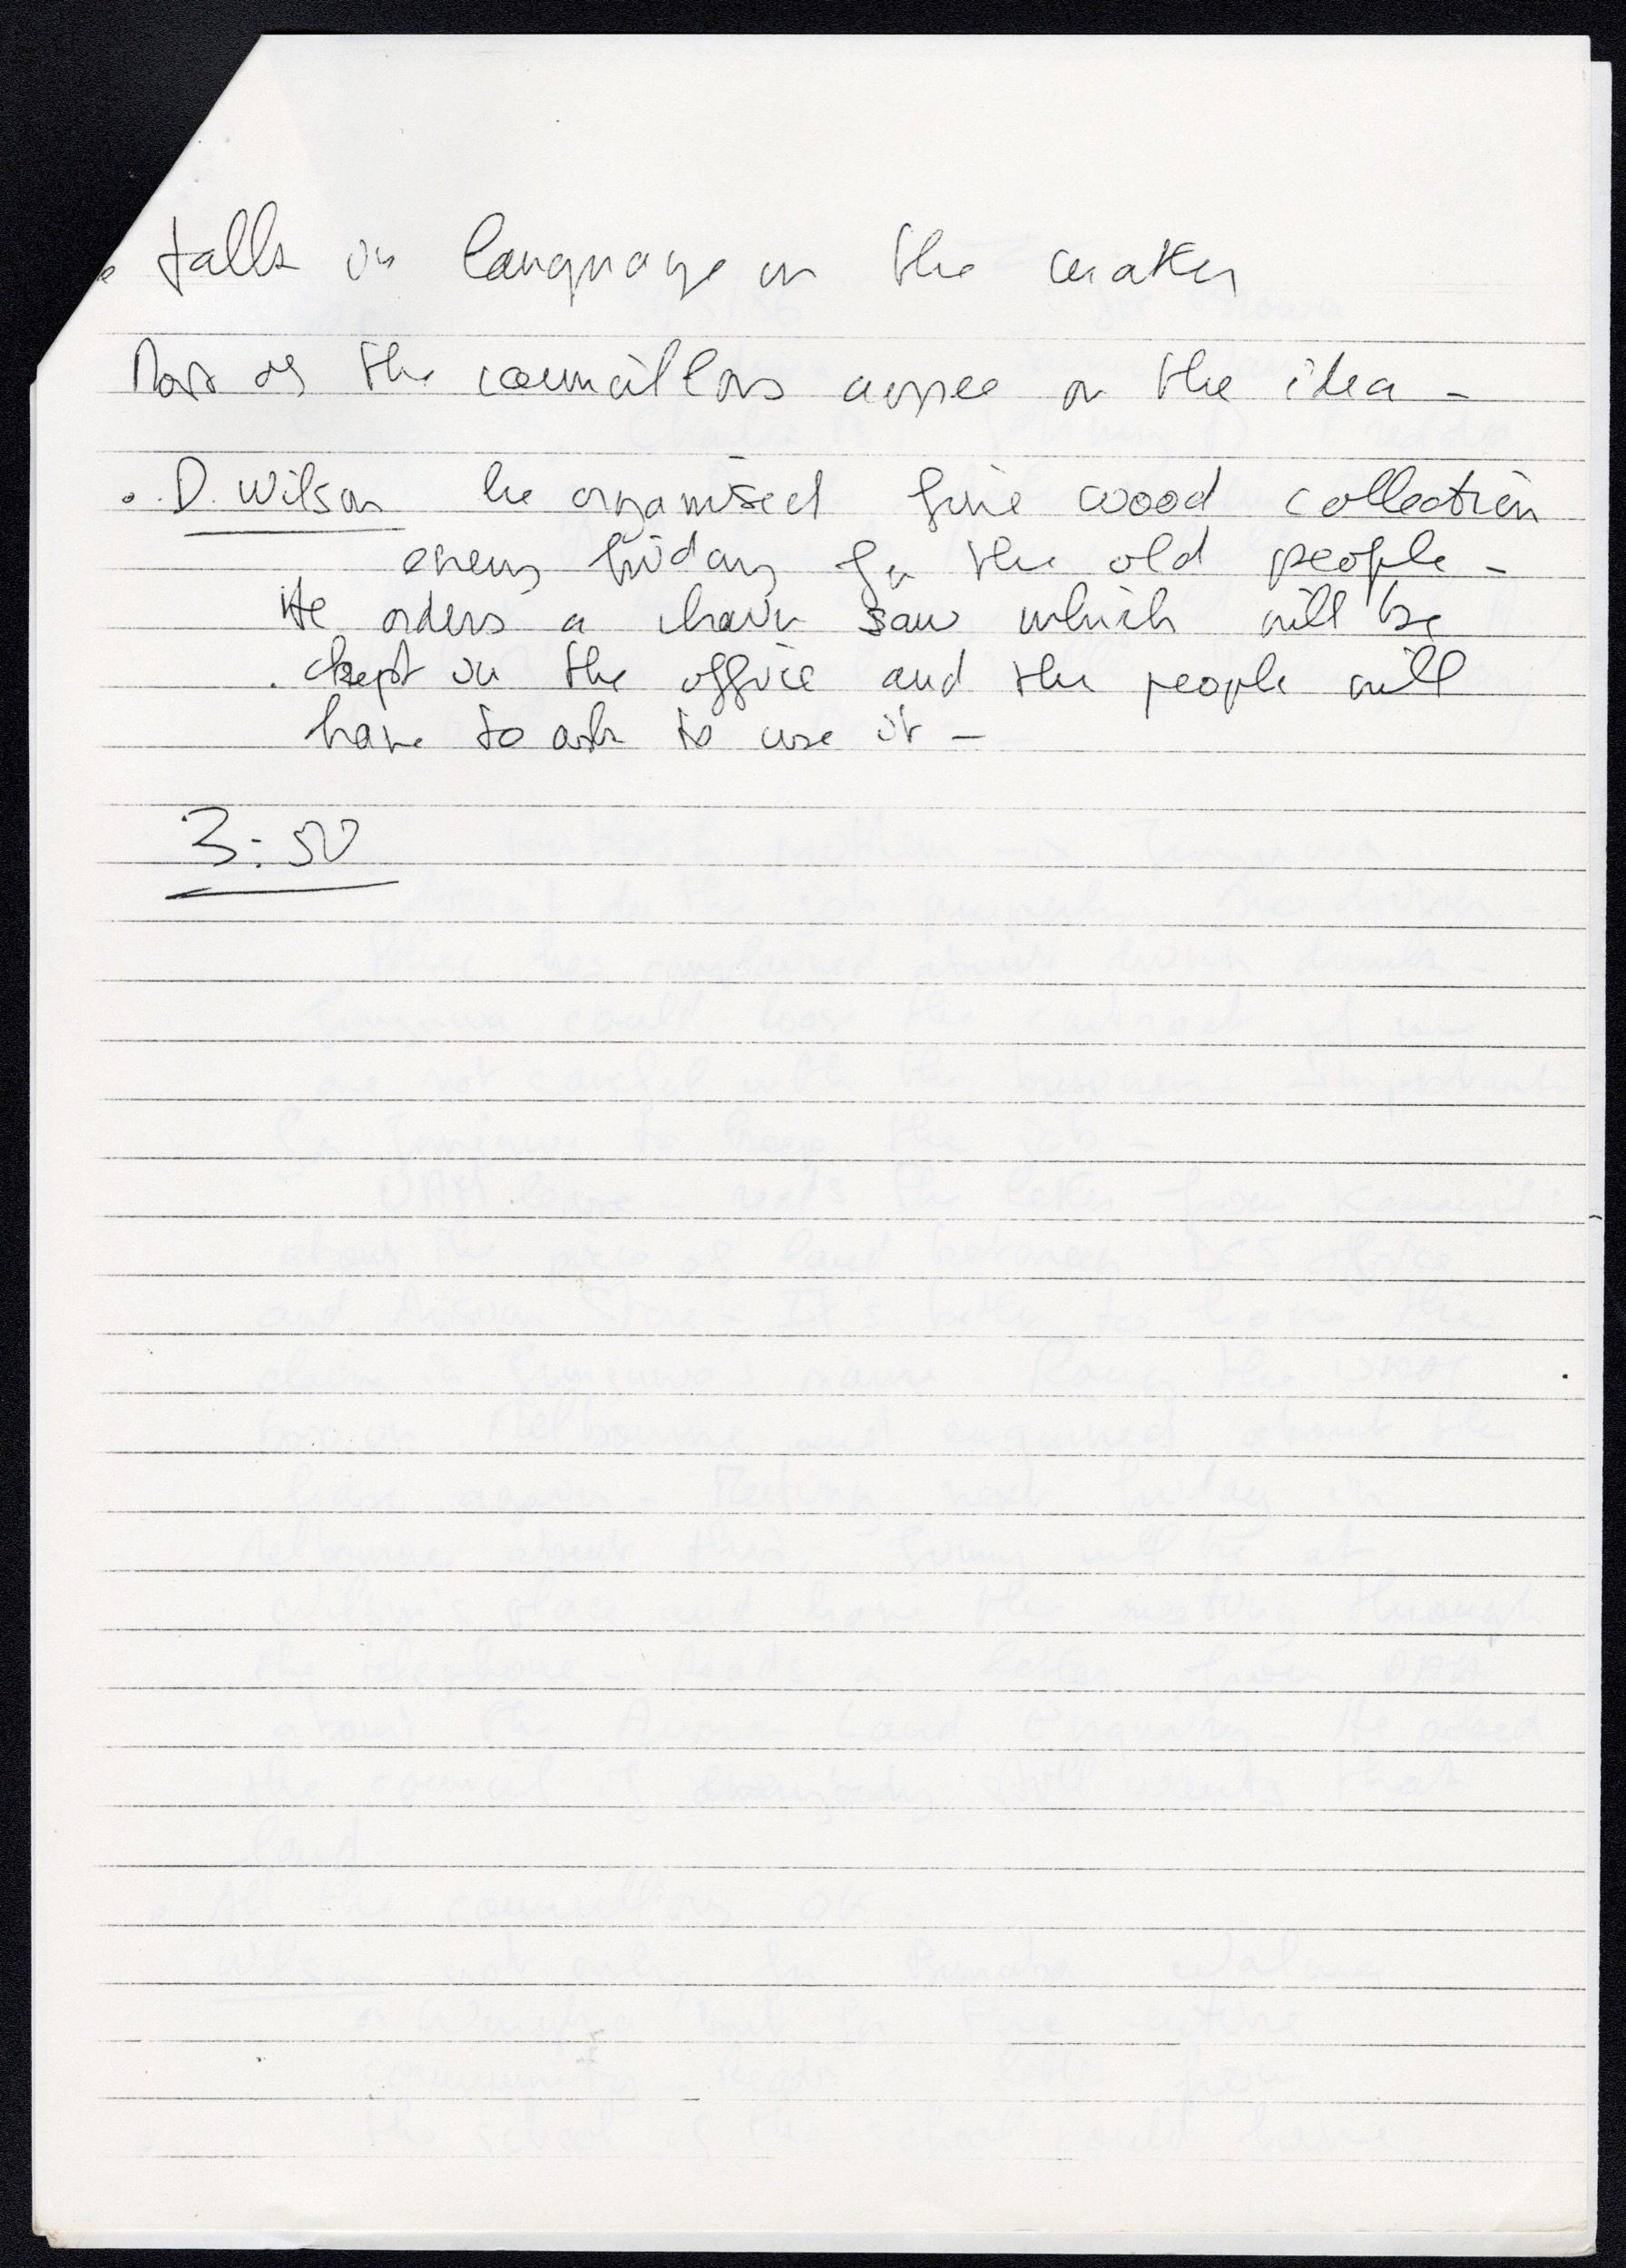 • talks in language on the matter
Most of the councillors agree on the idea -
• D. Wilson he organised fire wood collection
every friday for the old people -
He orders a chain saw which will be
kept in the office and the people will
have to ask to use it -
3:50